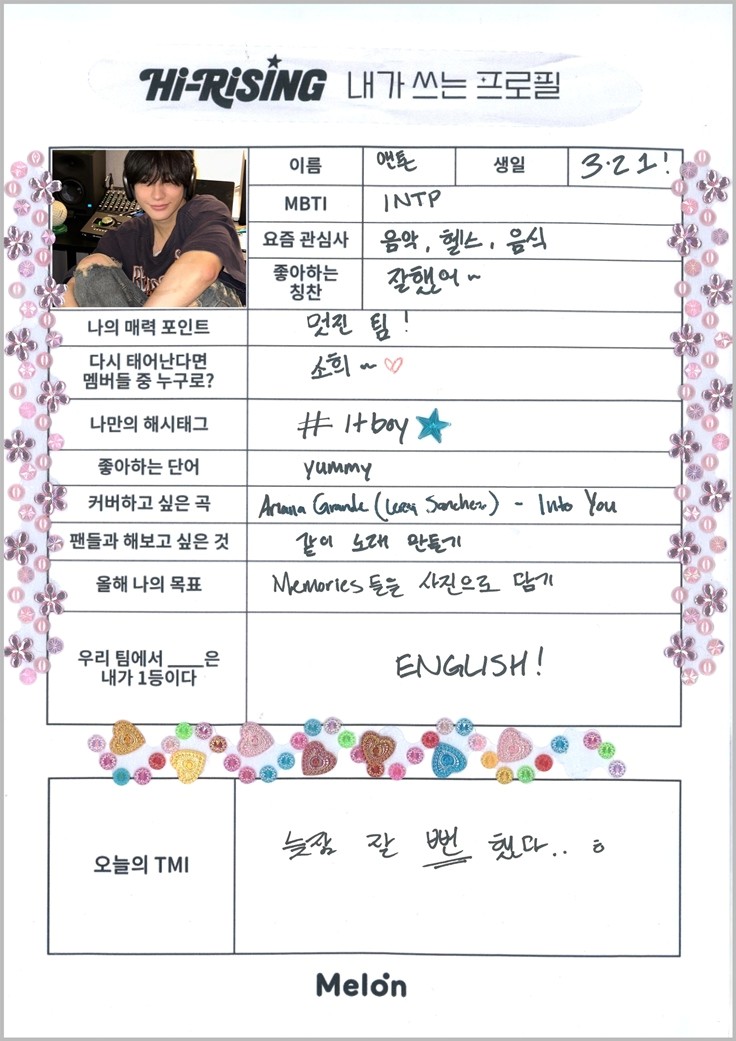 Hi-RiSiNG 내가 쓰는 프로필
이름 앤톤 생일 3.21!
MBTI INTP
요즘 관심사 음악, 헬스, 음식
좋아하는
칭찬 잘했어~
나의 매력 포인트 멋진 팀!
다시 태어난다면
멤버들 중 누구로? 소희~♡
나만의 해시태그 # It boy
좋아하는 단어 yummy
커버하고 싶은 곡 Ariana Grande ( Sanchez) - Into You
팬들과 해보고 싶은 것 같이 노래 만들기
올해 나의 목표 Memories들을 사진으로 담기
우리 팀에서 ____은
내가 1등이다 ENGLISH!
오늘의 TMI 늦잠 잘 뻔 했다.. ㅎ
Melon